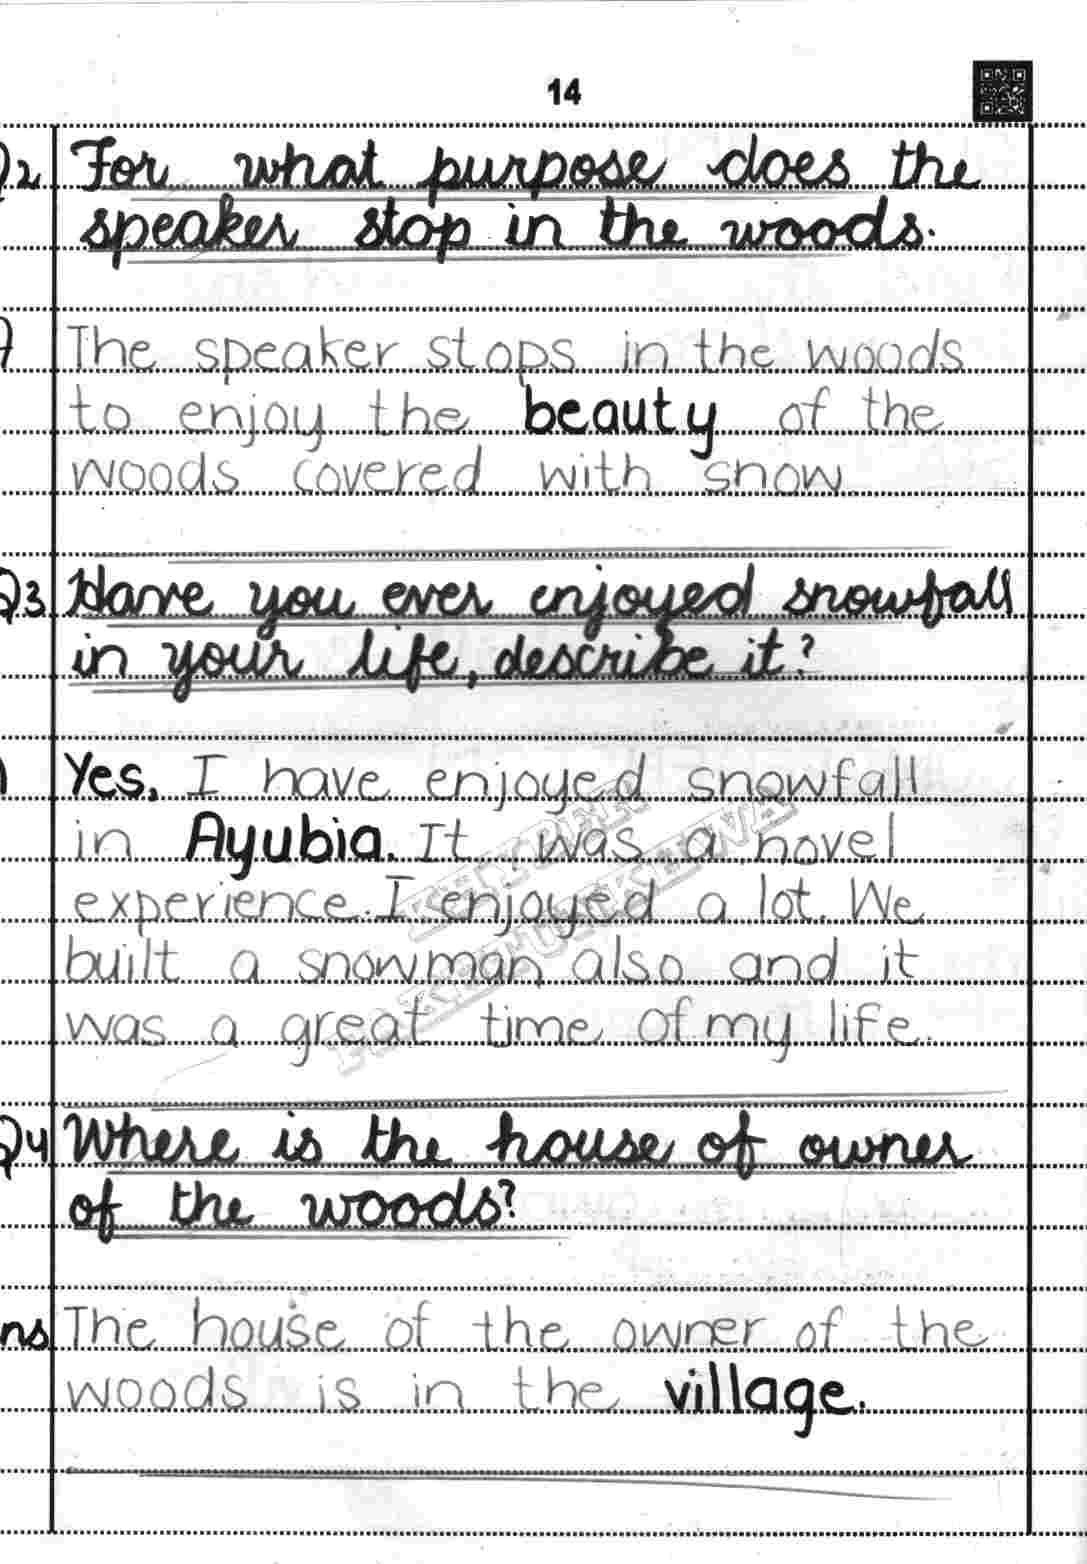 14
Q2 For what purpose does the
speaker stop in the woods.
The speaker stops in the woods
to enjoy the beauty of the
woods covered with snow
Q3 Have you ever enjoyed snowfall
in your life, describe it?
Yes, I have enjoyed snowfall
in Ayubia. It was a novel
experience. I enjoyed a lot. We
built a snowman also and it
was a great time of my life.
KHYBER
PAKHTUNKHWA
Q4 Where is the house of owner
of the woods?
ns The house of the owner of the
woods is in the village.